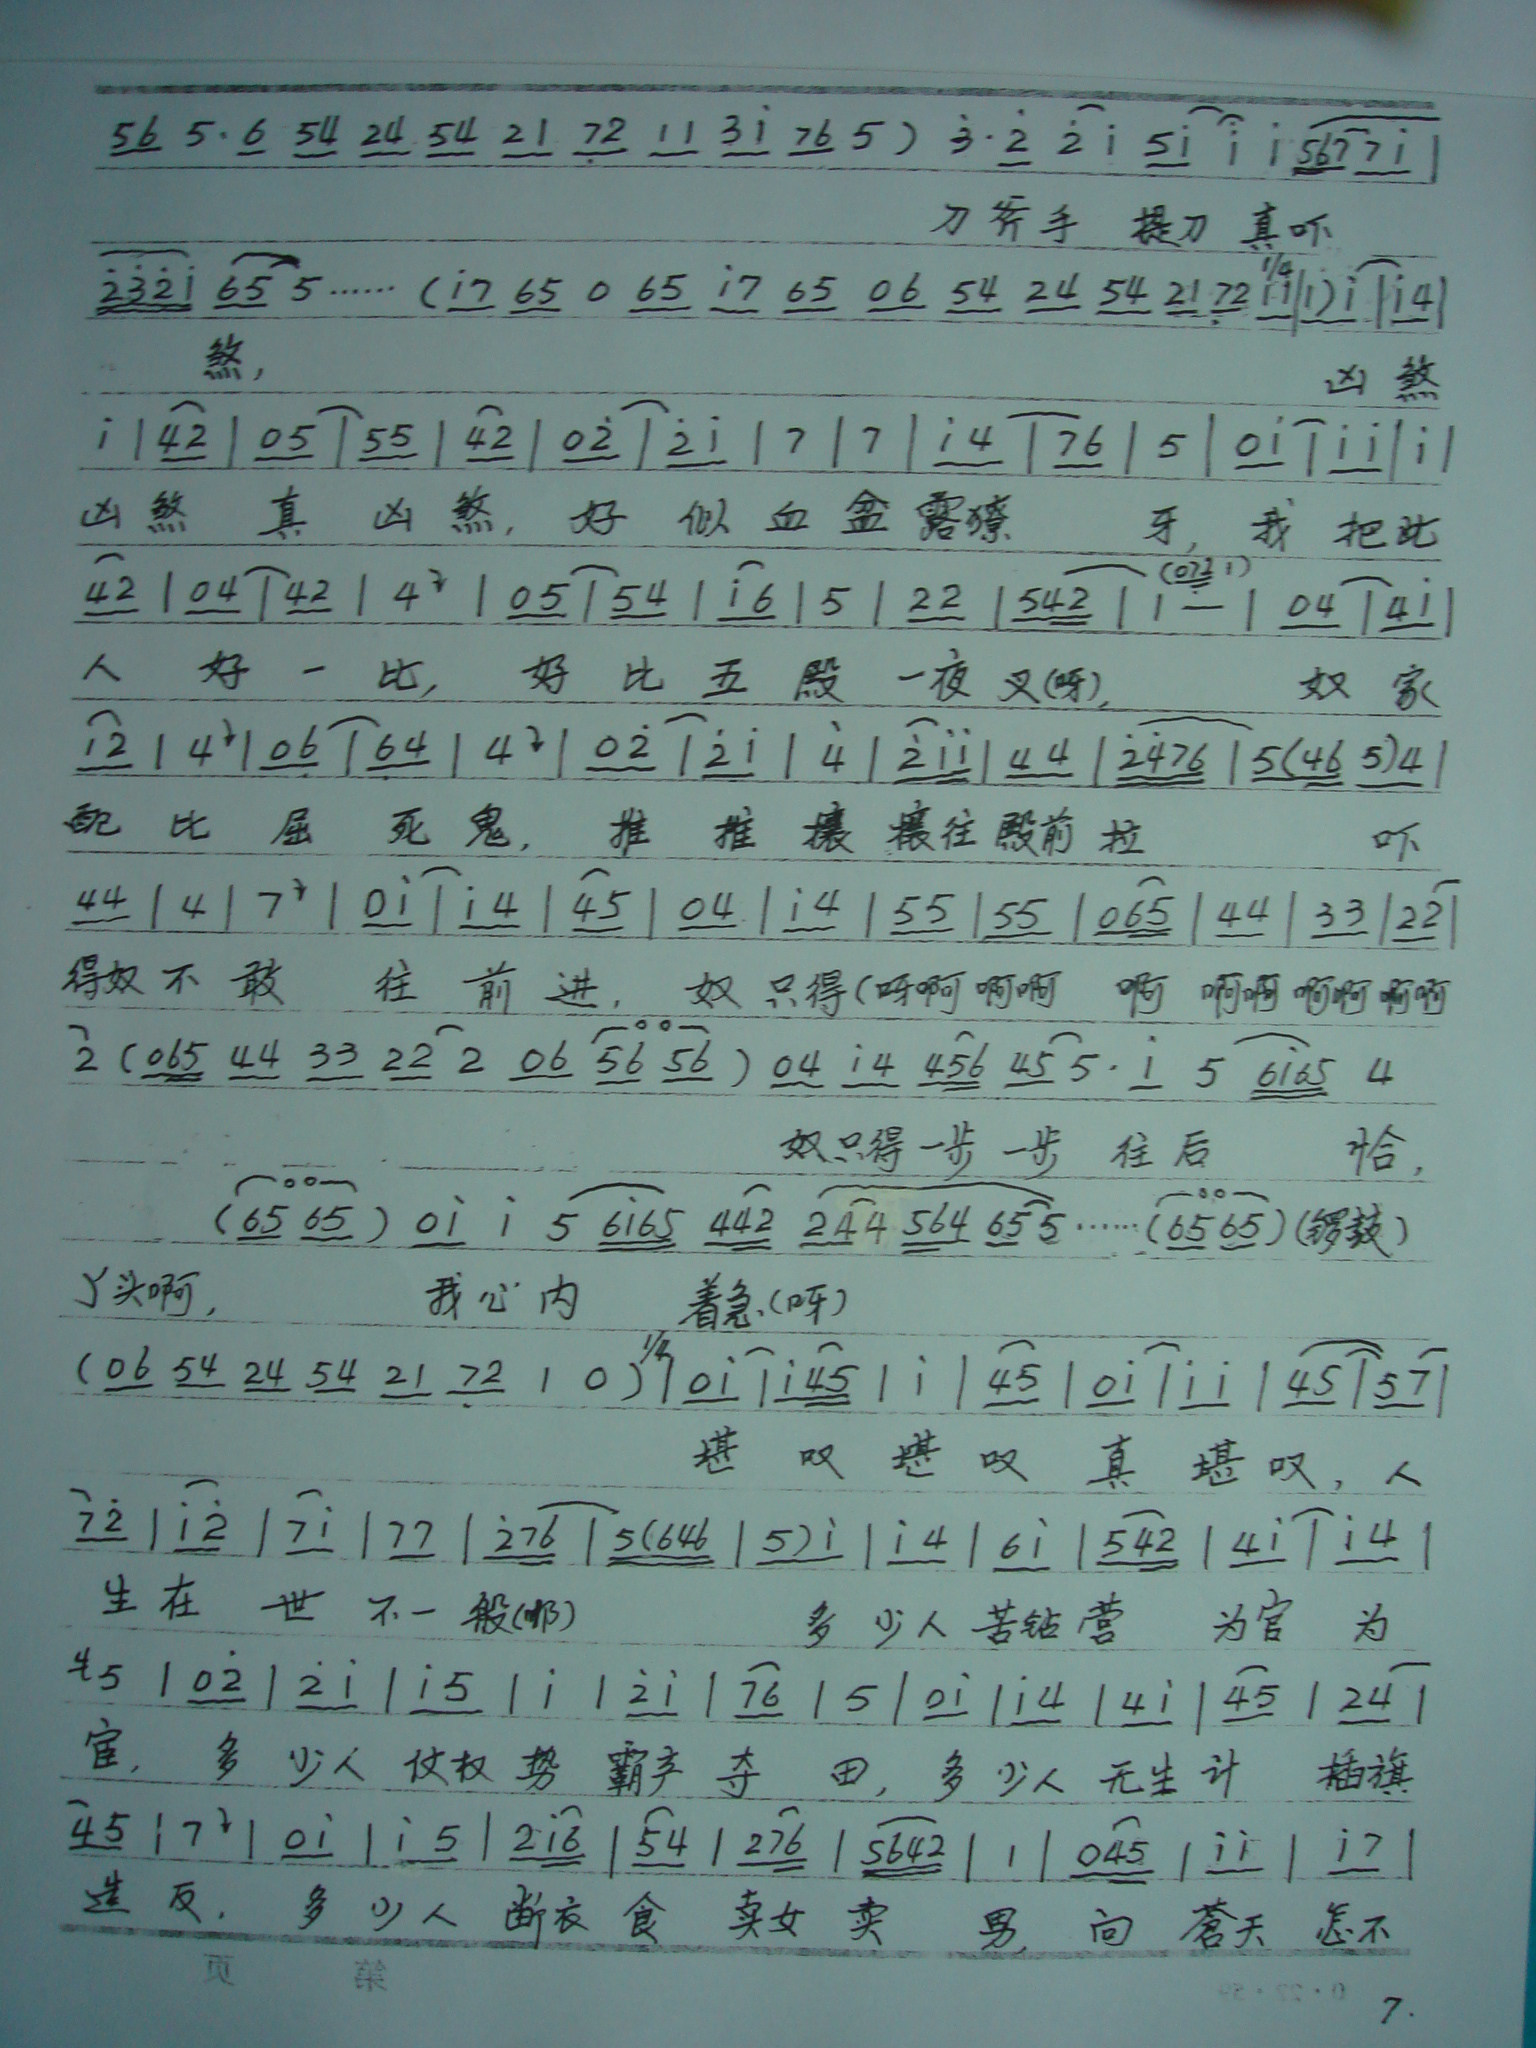 56 5·6 54 24 54 21 72 11 3i 76 5) 3·2 2i 5i i i 567 7i |
刀斧手 提刀 真吓
2321 65 5 …… (i7 65 0 65 i7 65 06 54 24 54 21 72 1/4 ii | i) i | i4 |
煞, 凶煞
i | 42 | 05 | 55 | 42 | 02 | 2i | 7 | 7 | i4 | 76 | 5 | 0i | ii | i |
凶煞 真 凶煞, 好似血盆露獠 牙, 我把此
42 | 04 | 42 | 4 | 05 | 54 | i6 | 5 | 22 | 542 | 1 — (072 1) | 04 | 4i |
人 好一比, 好比五殿一夜叉(呀), 奴家
i2 | 4 | 06 | 64 | 4 | 02 | 2i | 4 | 2ii | 44 | 2476 | 5(46 5)4 |
配比屈死鬼, 推推攘攘往殿前拉 吓
44 | 4 | 7 | 0i | i4 | 45 | 04 | i4 | 55 | 55 | 065 | 44 | 33 | 22 |
得奴不敢 往前进, 奴只得(呀啊啊啊 啊 啊啊啊啊啊啊
2 (065 44 33 22 2 06 56 56) 04 i4 456 45 5· i 5 6i65 4
奴只得一步一步往后 恰,
(65 65) 0i i 5 6i65 442 244 564 65 5 …… (65 65) (锣鼓)
丫头啊, 我心内 着急(呀)
(06 54 24 54 21 72 1 0) 1/4 | 0i | i45 | i | 45 | 0i | ii | 45 | 57 |
堪叹堪叹 真堪叹, 人
72 | i2 | 7i | 77 | 276 | 5(646 | 5)i | i4 | 6i | 542 | 4i | i4 |
生在世不一般(那) 多少人苦钻营 为官为
45 | 02 | 2i | i5 | i | 2i | 76 | 5 | 0i | i4 | 4i | 45 | 24 |
官, 多少人仗权势霸产夺田, 多少人无生计 插旗
45 | 7 | 0i | i5 | 2i6 | 54 | 276 | 5642 | 1 | 045 | ii | i7 |
造反, 多少人断衣食 卖女卖 男, 向苍天怎不
第 页
7.